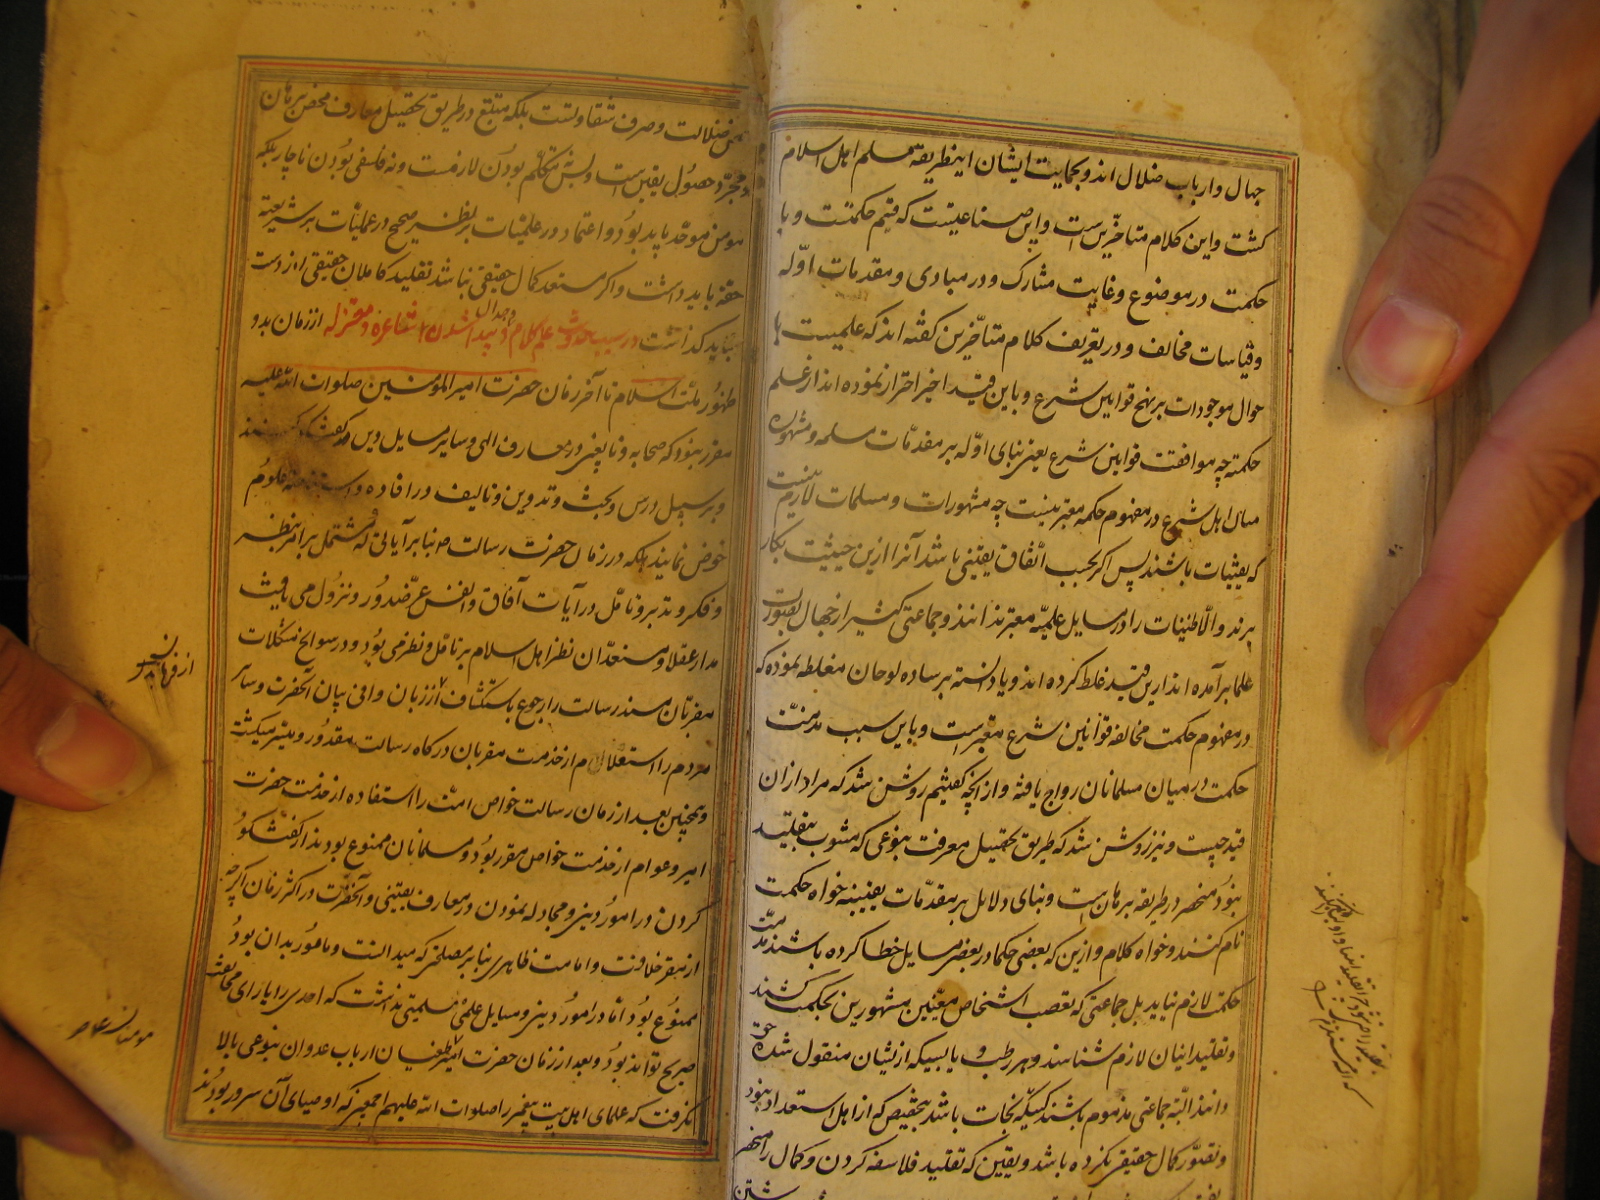 جهال و ارباب ضلال اند و بحمایت ایشان اینطریقه مسلم اهل اسلام
کشت و این کلام متاخرین است و این صناعتیست که قسیم حکمتست و با
حکمت در موضوع و غایت مشارک و در مبادی و مقدمات اوّله
و قیاسات مخالف و در تعریف کلام متاخّرین کفته اند که علمیست با
حوال موجودات بر نهج قوانین شرع و باین قید اخیر احتراز نموده اند از علم
حکمت چه موافقت قوانین شرع یعنی بنای اوّله بر مقدمات مسلمه و مشهوره
میان اهل شرع در مفهوم حکمة معتبر نیست چه مشهورات و مسلمات لازم نیست
که یقینیات باشند پس اکر بحسب اتّفاق یقینی باشد آنرا ازین حیثیت بکار
برند والّا ظنیات را در مسایل علمیّه معتبر ندانند و جماعتی کثیر از جهال بصورت
علما برآمده اند ازین قید غلط کرده اند و یا دانسته بر ساده لوحان مغلطه نموده که
در مفهوم حکمت مخالفه قوانین شرع معتبر است و باین سبب مذمّت
حکمت در میان مسلمانان رواج یافته و از آنچه کفتیم روشن شد که مراد ازان
قید چیست و نیز روشن شد که طریق تحصیل معرفت بنوعی که مشوب بتقلید
نبود منحصر در طریقه برهان است و بنای دلایل بر مقدّمات یقینیه خواه حکمت
نام کنند و خواه کلام و ازین که بعضی حکما در بعضی مسایل خطا کرده باشند مذمّت
حکمت لازم نیاید بل جماعتی که تعصب اشخاص معیّنین مشهورین بحکمت کشند
و تقلید ایشان لازم شناسند و هر رطب و یابسی که ازیشان منقول شده حق
دانند البته جماعتی مذموم باشند کیکه نجات باشد بتخصیص که از اهل استعداد بود
و تصوّر کمال حقیقی نکرده باشد و یقین که تقلید فلاسفه کردن و کمال را منحصر
عین ضلالت و صرف شقاوتست بلکه متبّع در طریق تحصیل معارف محض برهان
و مجرّد حصول یقین است و بس متکلّم بودن لازمست و نه فلسفی بودن ناچار بلکه
مومن موحّد باید بود و اعتماد در علمیّات بر نظر صحیح در عملیّات بر شریعة
حقه باید داشت و اکر مستعد کمال حقیقی نباشد تقلید کاملان حقیقی از دست
نباید کذاشت در سبب حدوث علم کلام و جدال و پیدا شدن اشاعره و معتزله از زمان بدو
ظهور ملّت اسلام تا آخر زمان حضرت امیرالمؤمنین صلوات الله علیه
مقرر نبود که صحابه و تابعین در معارف الهی و سایر مسایل دین
و بر سبیل درس و بحث و تدوین و تالیف در افاده و استفاده علوم
خوض نمایند بلکه در زمان حضرت رسالت بنا بر آیاتی که مشتمل بر امر بنظر
و فکر و تدبر و تامّل در آیات آفاق و انفس عزّ صدور و نزول می یافت
مدار عقلا و مستعدّان نظر اهل اسلام بر تامّل و نظر می بود و در سوانح مشکلات
مقرّبان مسند رسالت را رجوع باستکشاف از زبان وافی بیان آنحضرت و سایر
مردم را استعلام از خدمت مقربان درکاه رسالت مقدور و میسّر میکشت
و همچنین بعد از زمان رسالت خواص امّت را استفاده از خدمت حضرت
امیر و عوام از خدمت خواص مقرر بود و مسلمانان ممنوع بودند از کفتکو
کردن در امور دینی و مجادله نمودن در معارف یقینی و آنحضرت در اکثر زمان اکرچه
از مقر خلافت و امامت ظاهری بنا بر مصلحتی که میدانست و مامور بدان بود
ممنوع بود امّا در امور دینی و مسایل علمی مسلمیّتی نداشت که احدی را یارای مخالفت
صریح تواند بود و بعد از زمان حضرت امیر طغیان ارباب عدوان بنوعی بالا
نکرفت که علمای اهل بیت پیغمبر را صلوات الله علیهم اجمعین که اوصیای آن سرور بودند